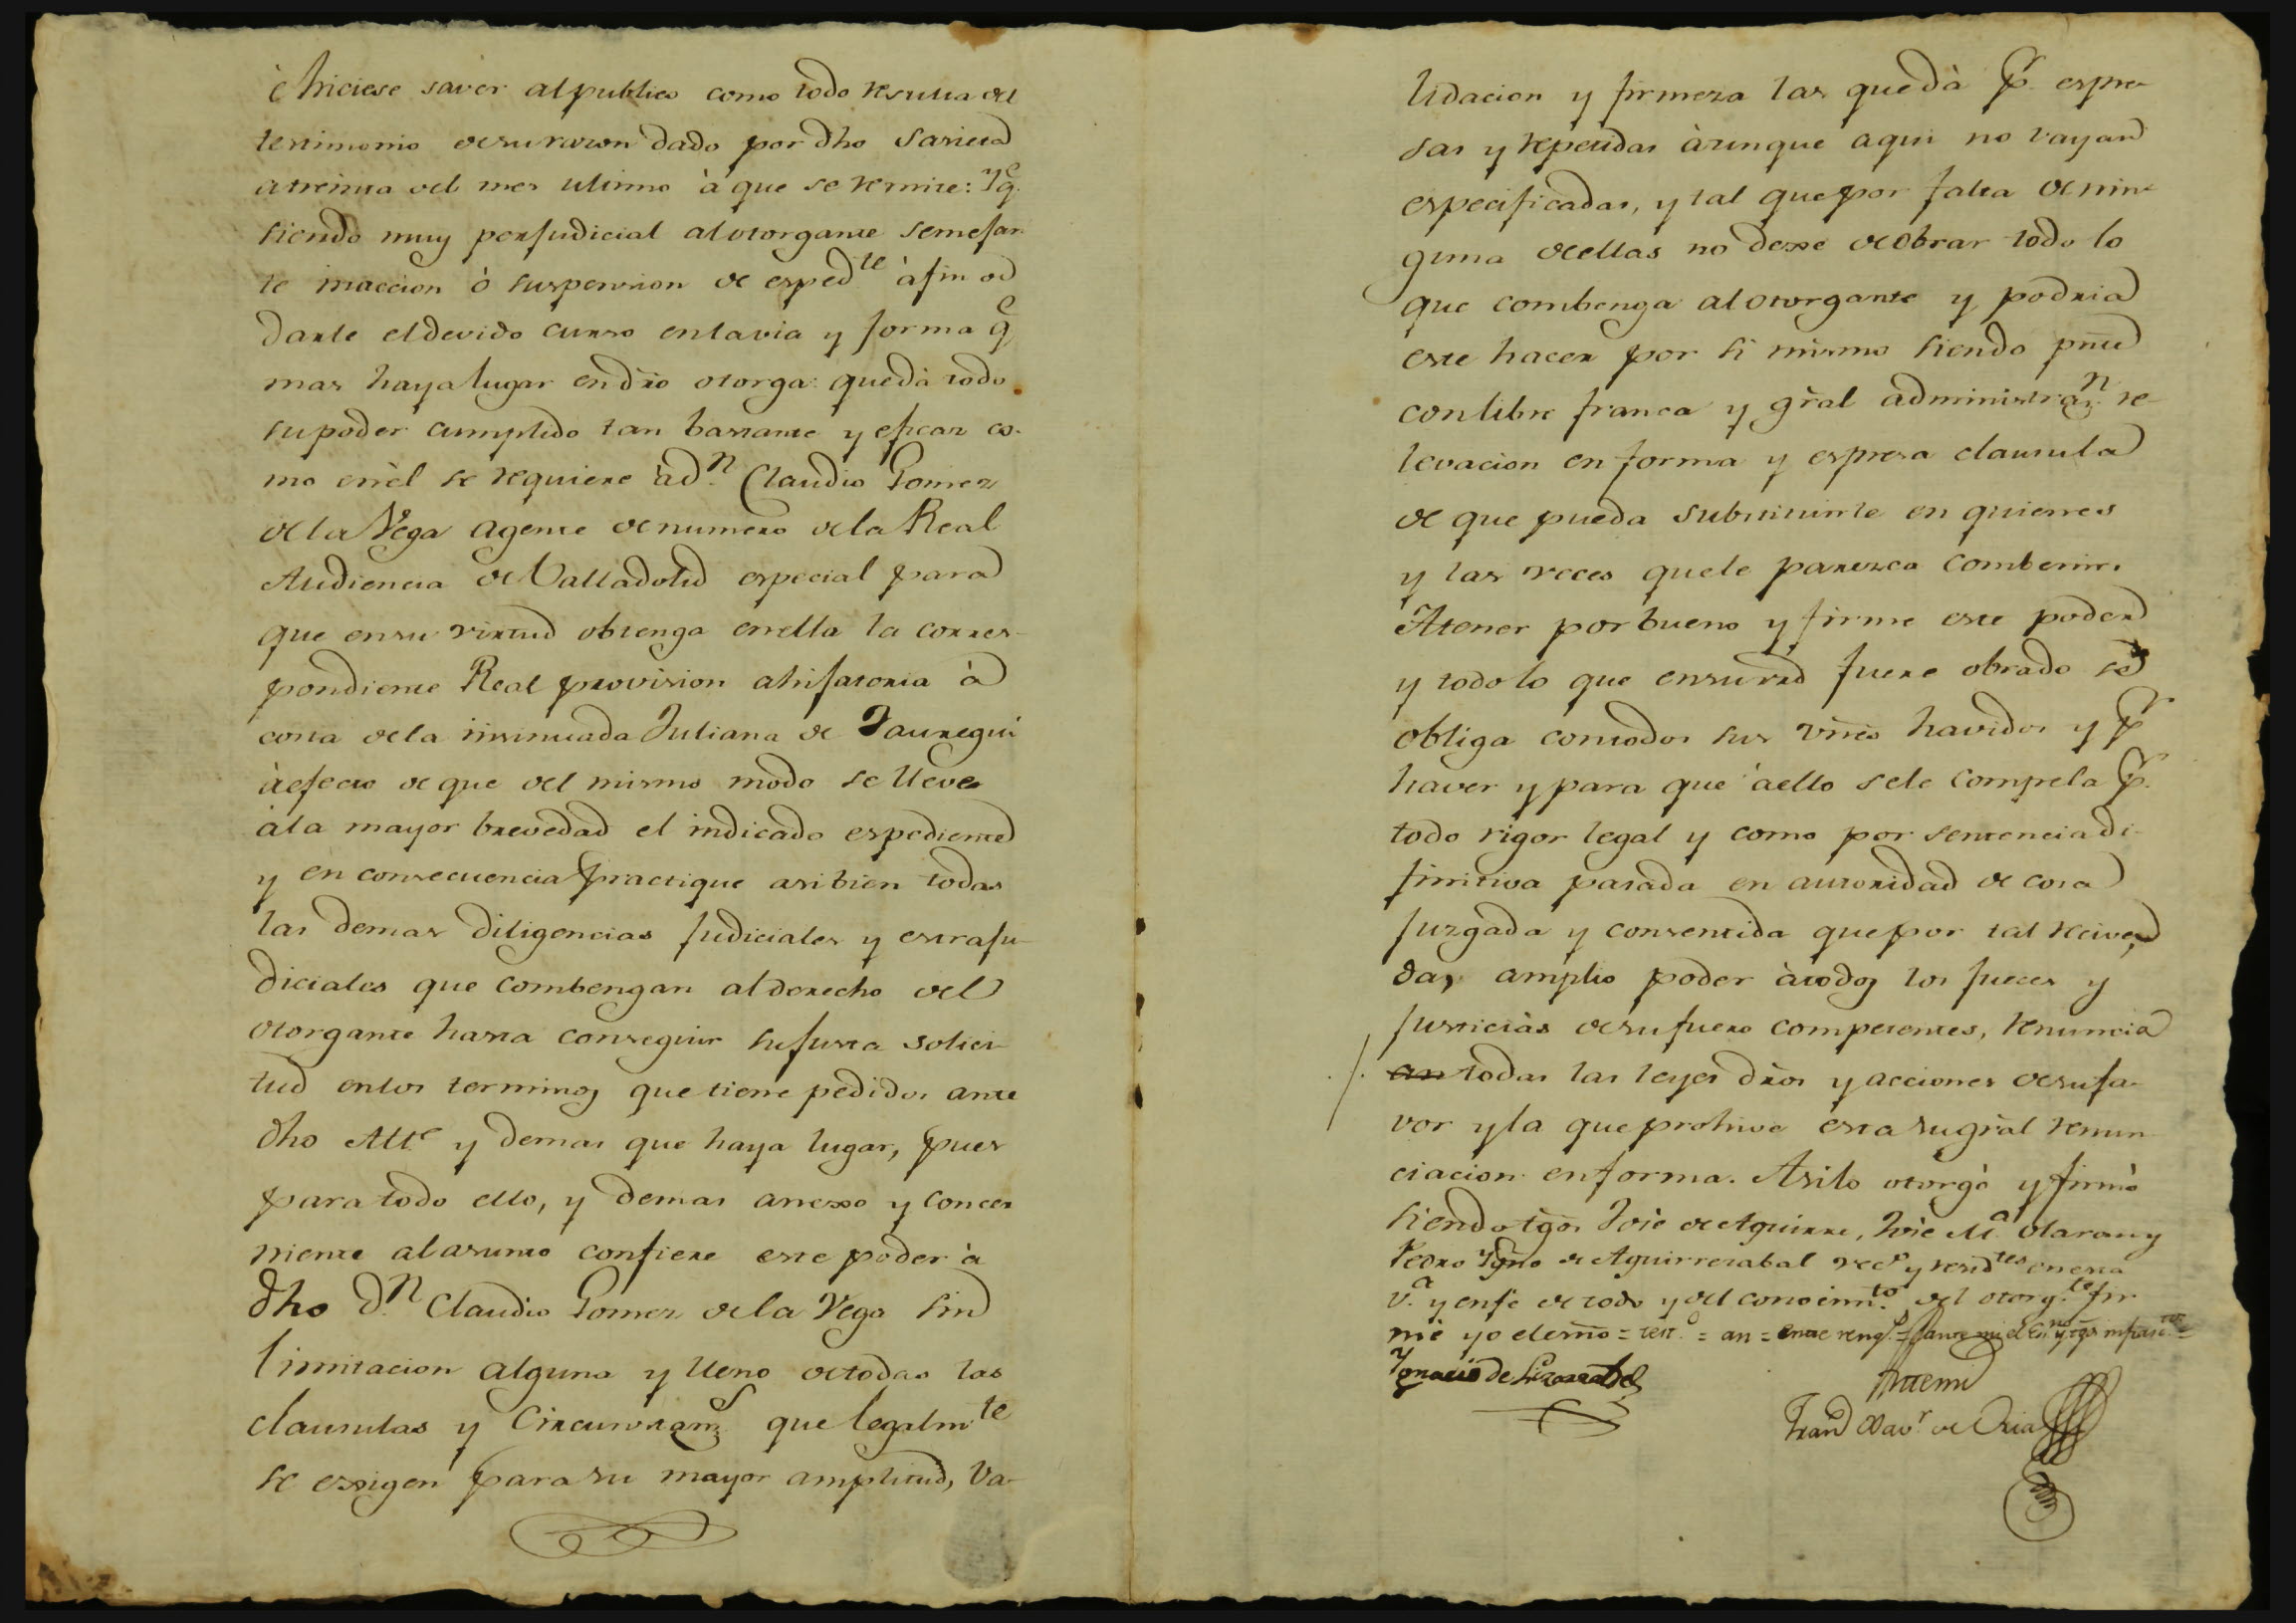 è hiciese saver al publico como todo resulta del
testimonio de su razon dado por dho Sarietad
a treinta del mes ultimo à que se remite: Yq.e
siendo muy perjudicial al otorgante semejan
te inaccion ò suspension de exped.te à fin de
darle el devido curso en la via y forma q.e
mas haya lugar en dro otorga: que dà todo
su poder cumplido tan bastante y eficaz co-
mo en èl se requiere à d.n Claudio Gomez
de la Vega agente de numero de la Real
Audiencia de Valladolid especial para
que en su virtud obtenga en ella la corres-
pondiente Real provision ahijatoria à
costa de la insinuada Juliana de Jauregui
à efecto de que del mismo modo se lleve
à la mayor brevedad el indicado espediente
y en consecuencia practique asibien todas
las demas diligencias judiciales y estraju-
diciales que combengan al derecho del
otorgante hasta conseguir su justa solici-
tud en los terminos que tiene pedidos ante
dho Alt.e y demas que haya lugar, pues
para todo ello, y demas anexo y concer
niente al asunto confiere este poder à
dho d.n Claudio Gomez de la Vega sin
limitacion alguna y lleno de todas las
clausulas y circunstanz.s que legalm.te
se exsigen para su mayor amplitud, va-
lidacion y firmeza las que dà p.r espre-
sas y repetidas àunque aqui no vayan
especificadas, y tal que por falta de nin-
guna de ellas no dexe de obrar todo lo
que combenga al otorgante y podria
este hacer por si mismo siendo pnte
con libre franca y gral administraz.n re-
levacion en forma y espresa clausula
de que pueda substituirle en quienes
y las veces que le parezca combenir.
A tener por bueno y firme este poder
y todo lo que en su vrd fuere obrado se
obliga con todos sus vnes havidos y p.r
haver y para que à ello se le compela p.r
todo rigor legal y como por sentencia di-
finitiva pasada en autoridad de cosa
juzgada y consentida que por tal recive,
da, amplio poder à todos los jueces y
justicias de su fuero competentes, renuncia
an todas las leyes dros y acciones de su fa-
vor y la que prohive esta su gral renun
ciacion en forma. Asi lo otorgò y firmò
siendo tgos Jose de Aguirre, Jose M.a Olaran y
Pedro Ygno de Aguirrezabal vec.s y resid.tes en esta
v.a y en fe de todo y del conocim.to del otorg.te fir
mè yo el esno = test.o = an = entre reng.s = ante mi el es.no y tgos infrasc.tos =
Ygnacio de Lizarralde
Ante mi
Fran.co Xav.r de Oria